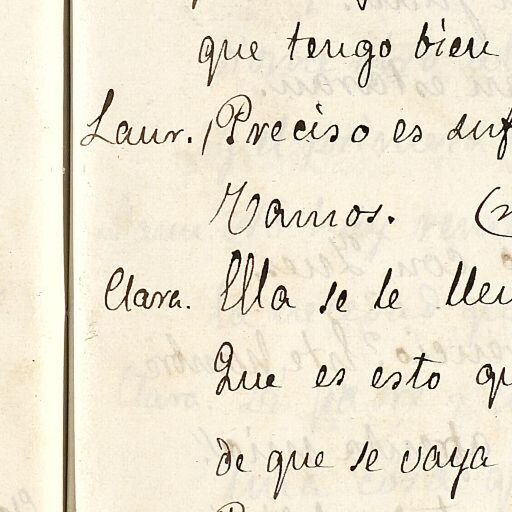 que tengo bien
Laur. Preciso es suf
Vamos. (
Clara. Ella se le llev
Que es esto qu
de que se vaya